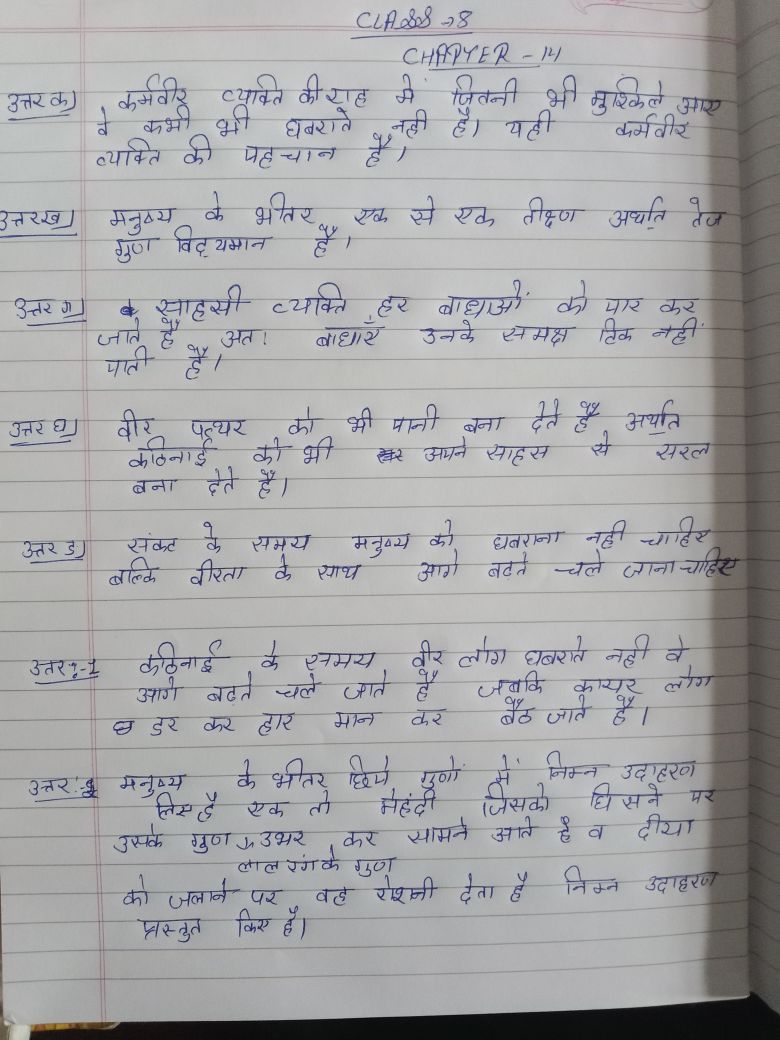 CLASS → 8
CHAPTER - 14
उत्तर क) कर्मवीर व्यक्ति की राह में जितनी भी मुश्किले आए
वे कभी भी घबराते नही है। यही कर्मवीर
व्यक्ति की पहचान है।
उत्तर ख) मनुष्य के भीतर एक से एक तीक्ष्ण अर्थात् तेज
गुण विद्यमान हैं।
उत्तर ग) साहसी व्यक्ति हर बाधाओं को पार कर
जाते हैं अत। बाधाएँ उनके समक्ष टिक नहीं
पाती हैं।
उत्तर घ) वीर पत्थर को भी पानी बना देते हैं अर्थात
कठिनाई को भी अपने साहस से सरल
बना देते हैं।
उत्तर ङ) संकट के समय मनुष्य को घबराना नही चाहिए
बल्कि वीरता के साथ आगे बढ़ते चले जाना चाहिए
उत्तर:-1 कठिनाई के समय वीर लोग घबराते नही वे
आगे बढ़ते चले जाते हैं जबकि कायर लोग
डर कर हार मान कर बैठ जाते हैं।
उत्तर:- मनुष्य के भीतर छिपे गुणों में निम्न उदाहरण
लिए है एक तो मेहंदी जिसको घिसने पर
उसके गुण उभर कर सामने आते है व दीया
लाल रंग के गुण
को जलाने पर वह रोशनी देता है निम्न उदाहरण
प्रस्तुत किए है।